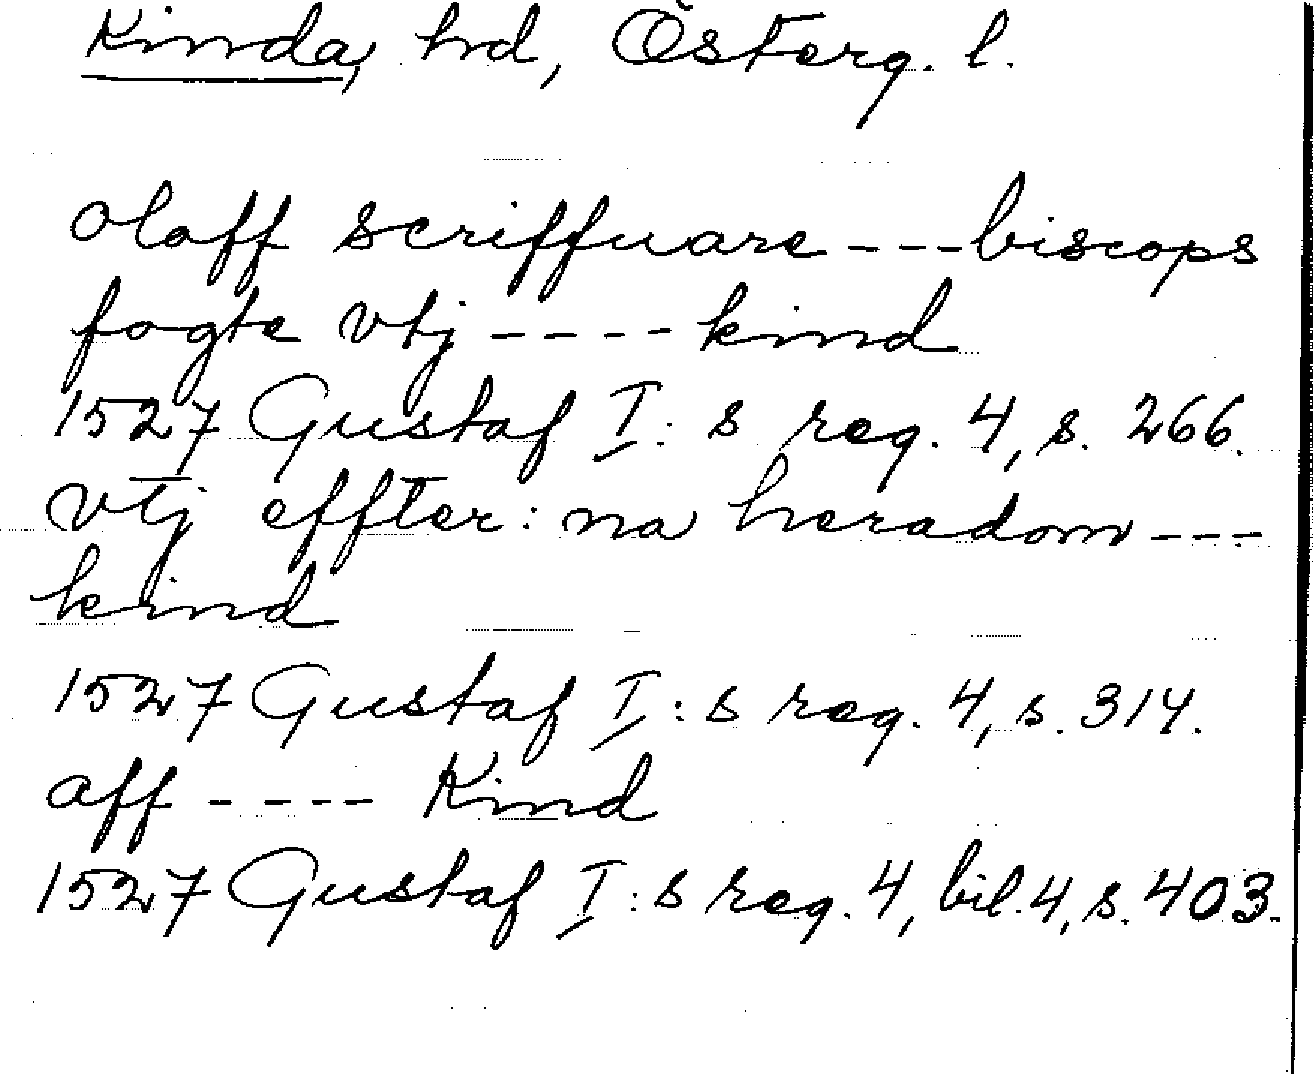 Kinda, hd, Österg. l.
Oloff scriffuare ---biscops
fogte vtj ---- kind
1527 Gustaf I:s reg. 4, s. 266.
vtj effter: na heradom ---
kind
1527 Gustaf I:s reg. 4, s. 314.
aff ---- Kind
1527 Gustaf I:s reg. 4, bil. 4, s. 403.